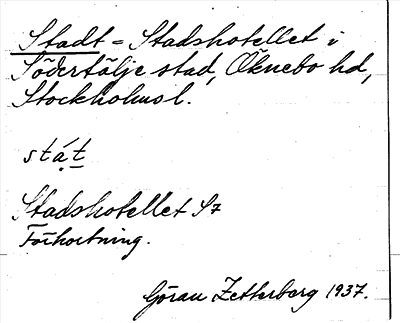 Stadt = Stadshotellet i
Södertälje stad, Öknebo hd,
Stockholms l.
stạ́t
Stadshotellet
Förkortning.
Göran Zetterberg 1937.